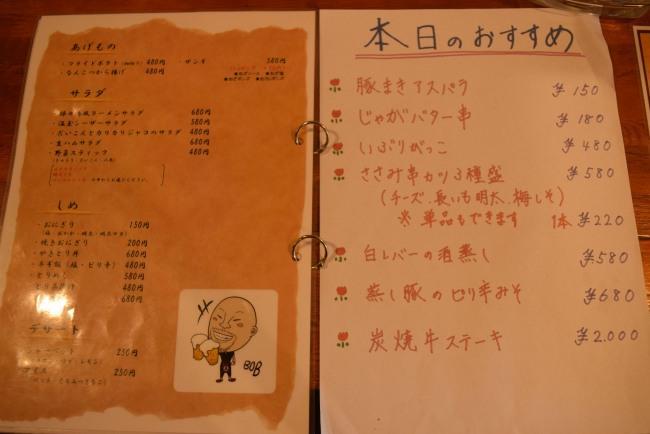 あげもの
・フライドポテト 480円 ・ザンギ 580円
・なんこつから揚げ 480円
サラダ
ラーメンサラダ 680円
・温玉シーザーサラダ 580円
・だいこんとカリカリジャコのサラダ 480円
・生ハムサラダ 680円
・野菜スティック 480円
しめ
・おにぎり 150円
・焼きおにぎり 200円
・やきとり丼 680円
・ネギ飯(塩・ピリ辛) 480円
・とりめし 580円
480円
680円
デザート
250円
250円
BOB
本日のおすすめ
豚まきアスパラ ¥150
じゃがバター串 ¥180
いぶりがっこ ¥480
ささみ串カツ3種盛 ¥580
(チーズ、長いも明太、梅しそ)
※単品もできます 1本 ¥220
白レバーの酒蒸し ¥580
蒸し豚のピリ辛みそ ¥680
炭焼牛ステーキ ¥2.000